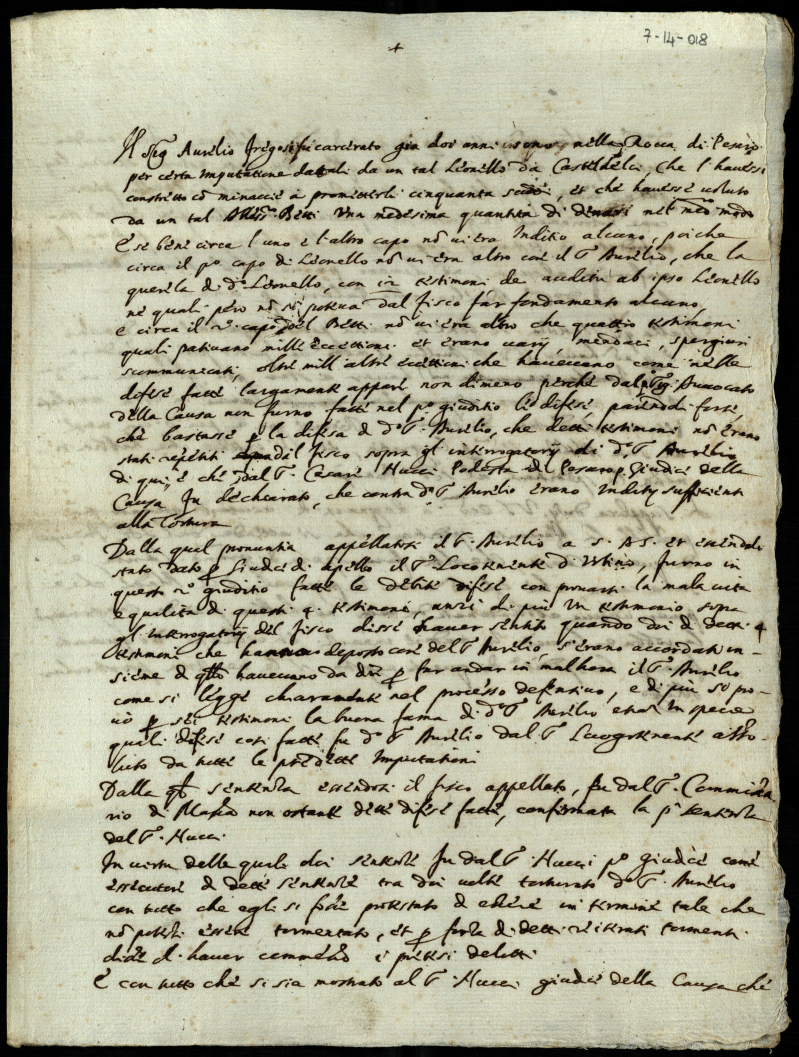 7-14-018
+
Il Sig.r Aurelio fregosi fu carcerato già doi anni nella Rocca di Pesaro
per certa imputatione datali da un tal Lionello da Casteldelci, che l'havessi
constretto cō minaccie à prometterli cinquanta scudi, et che havesse voluto
da un tal Betti una medesima quantità di denari nel med.mo modo
E se bene circa l'uno e l'altro capo nō vi era Inditio alcuno, poiche
circa il p.o capo di Lionello nō vi era altro cōe il S. Aurelio, che la
querela di d.o Lionello, con testimoni de auditu ab ipso Lionello
ne quali però nō si poteva dal fisco far fondamento alcuno,
e circa il 2.o capo del Betti nō vi era altro che quattro testimoni
quali pativano mille eccettioni et erano varij mendaci, spergiuri
scommunicati, oltre mill'altre eccettioni che havevano come nelle
difese fatte largamente appare, non dimeno perche dal Sig. Avvocato
della Causa non furno fatte nel p.o giuditio le difese, parendoli forse,
che bastasse ꝑ la difesa di d.o S. Aurelio, che detti testimoni nō erano
stati repetiti dal fisco sopra gl'interrogatorij di d.o S. Aurelio
di qui è che dal S. Cesare Mucci Podestà di Pesaro p.o Giudice della
Causa fu dechiarato, che contra d.o S. Aurelio erano Inditij sufficienti
alla tortura
Dalla qual pronuntia appellatosi il S. Aurelio a S. A. S. et essendoli
stato dato ꝑ Giudice di apello il S. Locotenente d'Urbino, furno in
questo 2.o giuditio fatte le debite difese con provarsi la mala vita
e qualità di questi 4 testimoni, anzi di più un testimonio sopra
gl'interrogatorij del fisco disse haver sentito quando doi di detti 4
testimoni che hanno deposto cōe del S. Aurelio, s'erano accordati in-
sieme di q.to havevano da dire ꝑ far andar in mal'hora il S. Aurelio
come si legge chiaramente nel processo defensivo, e di più si pro-
vò ꝑ sei testimoni la buona fama di d.o S. Aurelio etiā in specie
quali difese così fatte fu d.o S. Aurelio dal S. Luogotenente asso-
luto da tutte le predette Imputationi
Dalla q.l sentenza essendosi il fisco appellato, fu dal S. Commissa
rio di Massa non ostante dette difese fatte, confirmata la p.a sentenza
del S. Mucci
In virtù delle quali doi sentenze fu dal S. Mucci p.o giudice come
essecutore di dette sentenze tra doi volte torturato d.o S. Aurelio
con tutto che egli si fosse protestato di essere in termine tale che
nō potessi essere tormentato, et ꝑ forza di detti reiterati tormenti
disse d'haver commesso i pretesi delitti
E con tutto che si sia mostrato al S. Mucci giudice della Causa che